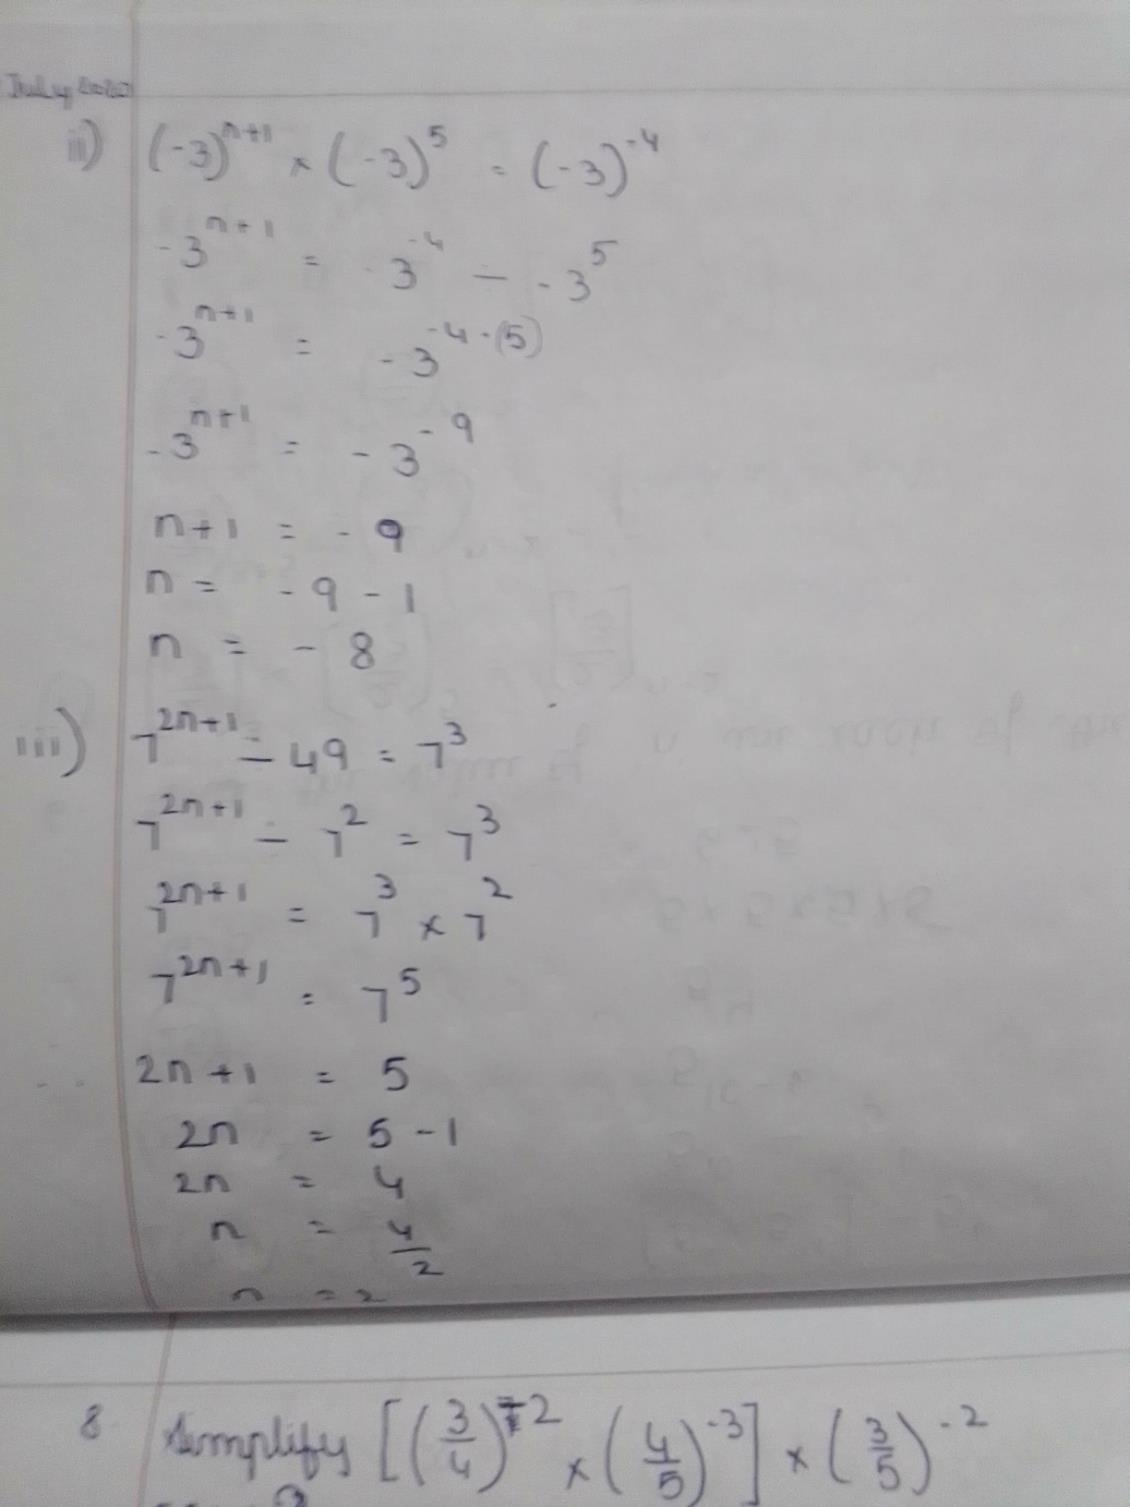 July 2020
ii) (-3)^{n+1} × (-3)^5 = (-3)^{-4}
-3^{n+1} = -3^{-4} - -3^5
-3^{n+1} = -3^{-4-(5)}
-3^{n+1} = -3^{-9}
n+1 = -9
n = -9-1
n = -8
iii) 7^{2n+1} - 49 = 7^3
7^{2n+1} - 7^2 = 7^3
7^{2n+1} = 7^3 × 7^2
7^{2n+1} = 7^5
2n+1 = 5
2n = 5-1
2n = 4
n = 4/2
n = 2
8 Simplify [(3/4)^{-2} × (4/5)^{-3}] × (3/5)^{-2}